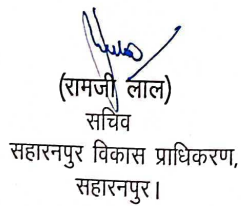 (रामजी लाल)
सचिव
सहारनपुर विकास प्राधिकरण,
सहारनपुर।